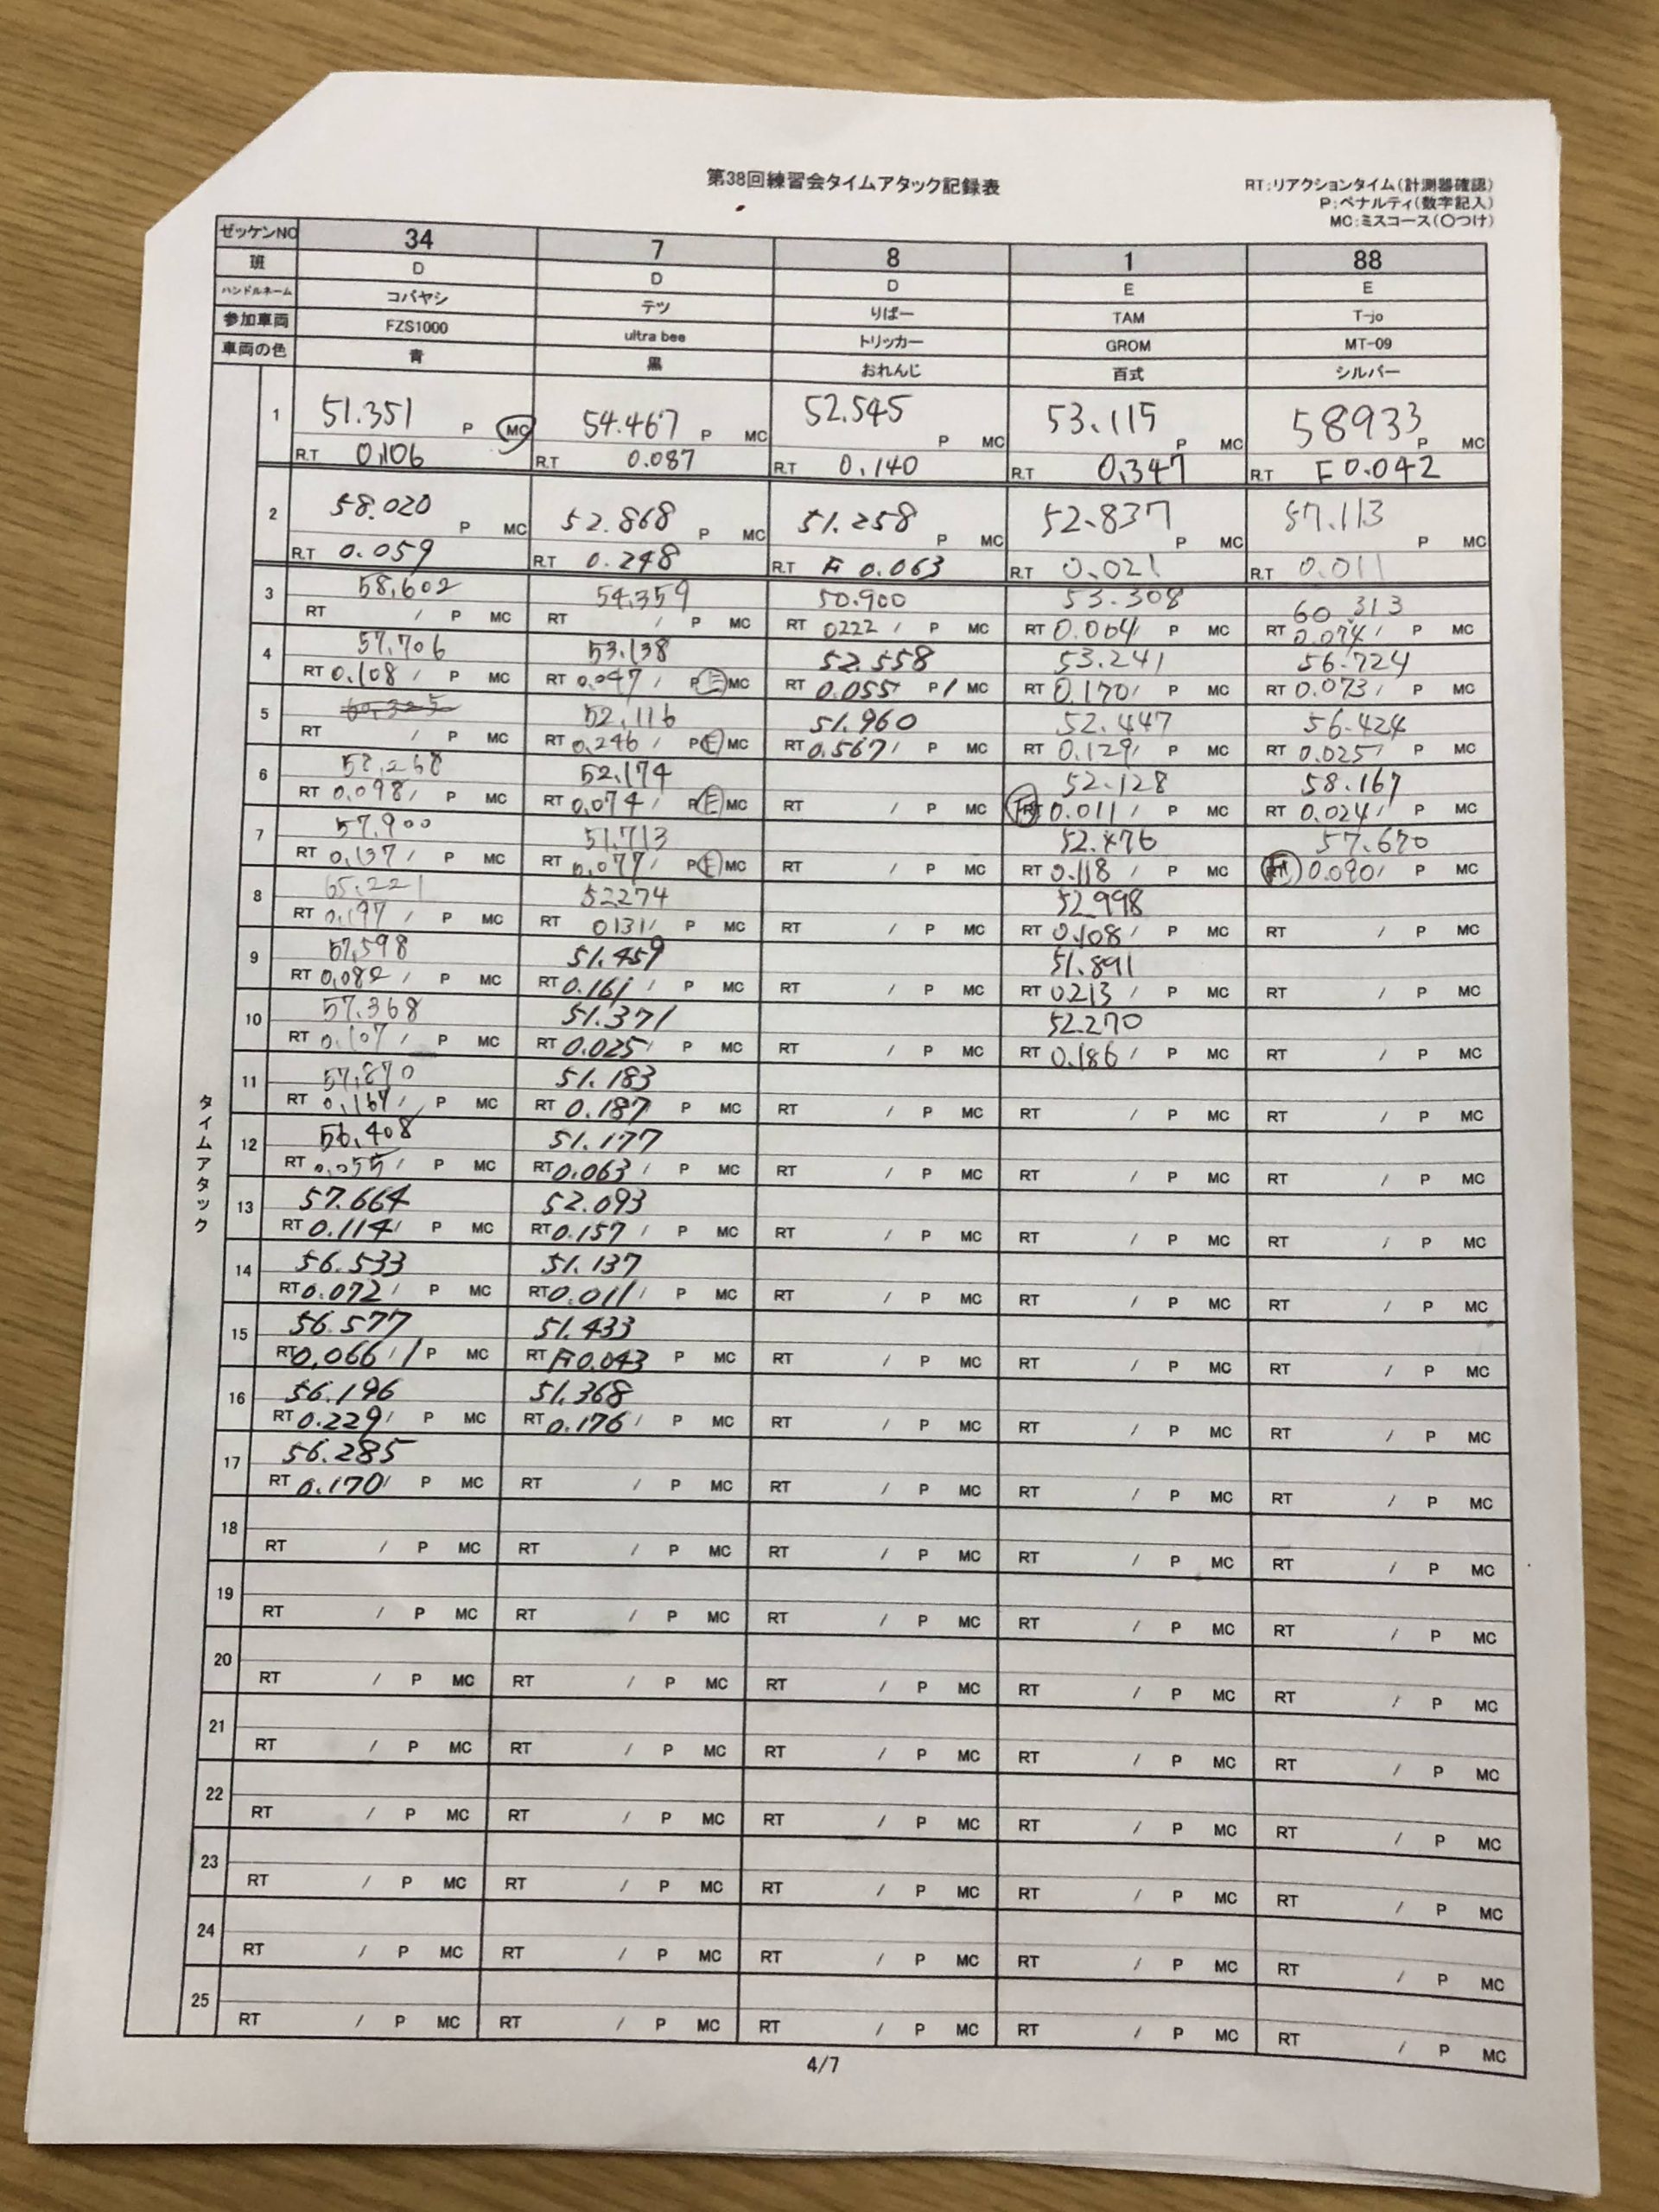 第38回練習会タイムアタック記録表
RT:リアクションタイム(計測器確認)
P:ペナルティ(数字記入)
MC:ミスコース(〇つけ)
ゼッケンNO 34 7 8 1 88
班 D D D E E
ハンドルネーム コバヤシ テツ りばー TAM T-jo
参加車両 FZS1000 ultra bee トリッカー GROM MT-09
車両の色 青 黒 おれんじ 百式 シルバー
タイムアタック
1 51.351 P MC 54.467 P MC 52.545 P MC 53.115 P MC 58933 P MC
R.T 0.106 R.T 0.087 R.T 0.140 R.T 0.347 R.T F 0.042
2 58.020 P MC 52.868 P MC 51.258 P MC 52.837 P MC 57.113 P MC
R.T 0.059 R.T 0.248 R.T F 0.063 R.T 0.021 R.T 0.011
3 58.602 54.359 50.900 53.308 60.313
RT / P MC RT / P MC RT 0222 / P MC RT 0.064 / P MC RT 0.074 / P MC
4 57.706 53.138 52.558 53.241 56.724
RT 0.108 / P MC RT 0.047 / P E MC RT 0.055 P 1 MC RT 0.170 / P MC RT 0.073 / P MC
5 52.116 51.960 52.447 56.424
RT / P MC RT 0.246 / P E MC RT 0.567 / P MC RT 0.129 / P MC RT 0.025 / P MC
6 52.174 52.128 58.167
RT 0.098 / P MC RT 0.074 / P E MC RT / P MC RT 0.011 / P MC RT 0.024 / P MC
7 57.900 51.713 52.476 57.670
RT 0.137 / P MC RT 0.077 / P E MC RT / P MC RT 0.118 / P MC RT 0.090 / P MC
8 65.221 52274 52.998
RT 0.197 / P MC RT 0131 / P MC RT / P MC RT 0.108 / P MC RT / P MC
9 57.598 51.459 51.891
RT 0.082 / P MC RT 0.161 / P MC RT / P MC RT 0.213 / P MC RT / P MC
10 57.368 51.371 52.270
RT 0.107 / P MC RT 0.025 / P MC RT / P MC RT 0.186 / P MC RT / P MC
11 57.870 51.183
RT 0.167 / P MC RT 0.187 P MC RT / P MC RT / P MC RT / P MC
12 56.408 51.177
RT 0.055 / P MC RT 0.063 / P MC RT / P MC RT / P MC RT / P MC
13 57.664 52.093
RT 0.114 / P MC RT 0.157 / P MC RT / P MC RT / P MC RT / P MC
14 56.533 51.137
RT 0.072 / P MC RT 0.011 / P MC RT / P MC RT / P MC RT / P MC
15 56.577 51.433
RT 0.066 / 1 P MC RT F 0.043 P MC RT / P MC RT / P MC RT / P MC
16 56.196 51.368
RT 0.229 / P MC RT 0.176 / P MC RT / P MC RT / P MC RT / P MC
17 56.285
RT 0.170 / P MC RT / P MC RT / P MC RT / P MC RT / P MC
18
RT / P MC RT / P MC RT / P MC RT / P MC RT / P MC
19
RT / P MC RT / P MC RT / P MC RT / P MC RT / P MC
20
RT / P MC RT / P MC RT / P MC RT / P MC RT / P MC
21
RT / P MC RT / P MC RT / P MC RT / P MC RT / P MC
22
RT / P MC RT / P MC RT / P MC RT / P MC RT / P MC
23
RT / P MC RT / P MC RT / P MC RT / P MC RT / P MC
24
RT / P MC RT / P MC RT / P MC RT / P MC RT / P MC
25
RT / P MC RT / P MC RT / P MC RT / P MC RT / P MC
4/7